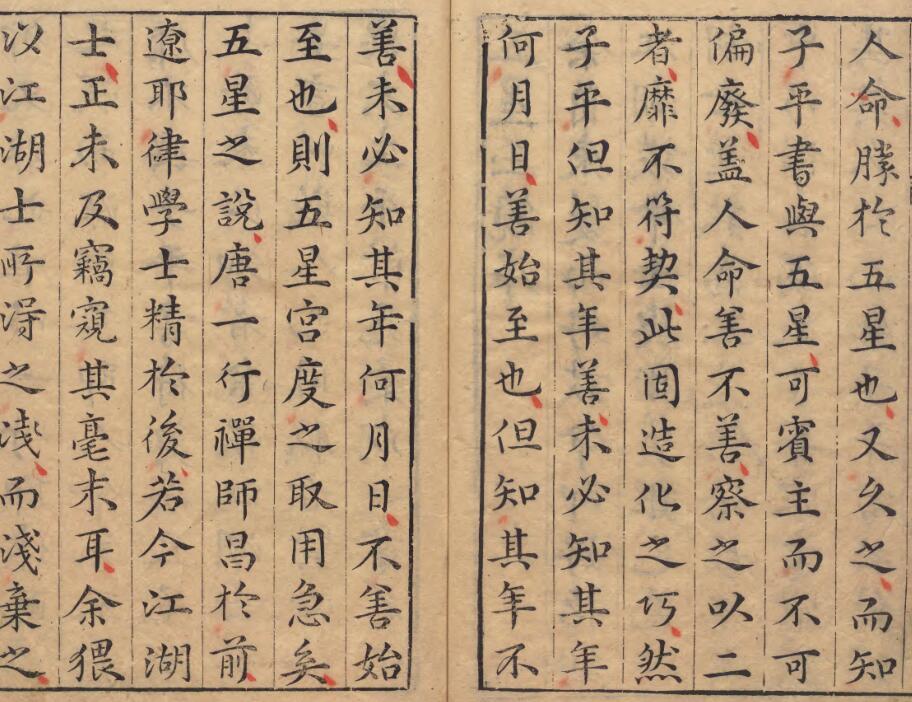 人命勝於五星也又久之而知
子平書與五星可賓主而不可
偏廢盖人命善不善察之以二
者靡不符契此固造化之巧然
子平但知其年善未必知其年
何月日善始至也但知其年不
善未必知其年何月日不善始
至也則五星宮度之取用急矣
五星之說唐一行禪師昌於前
遼耶律學士精於後若今江湖
士正未及竊窺其毫末耳余猥
以江湖士所得之淺而淺棄之